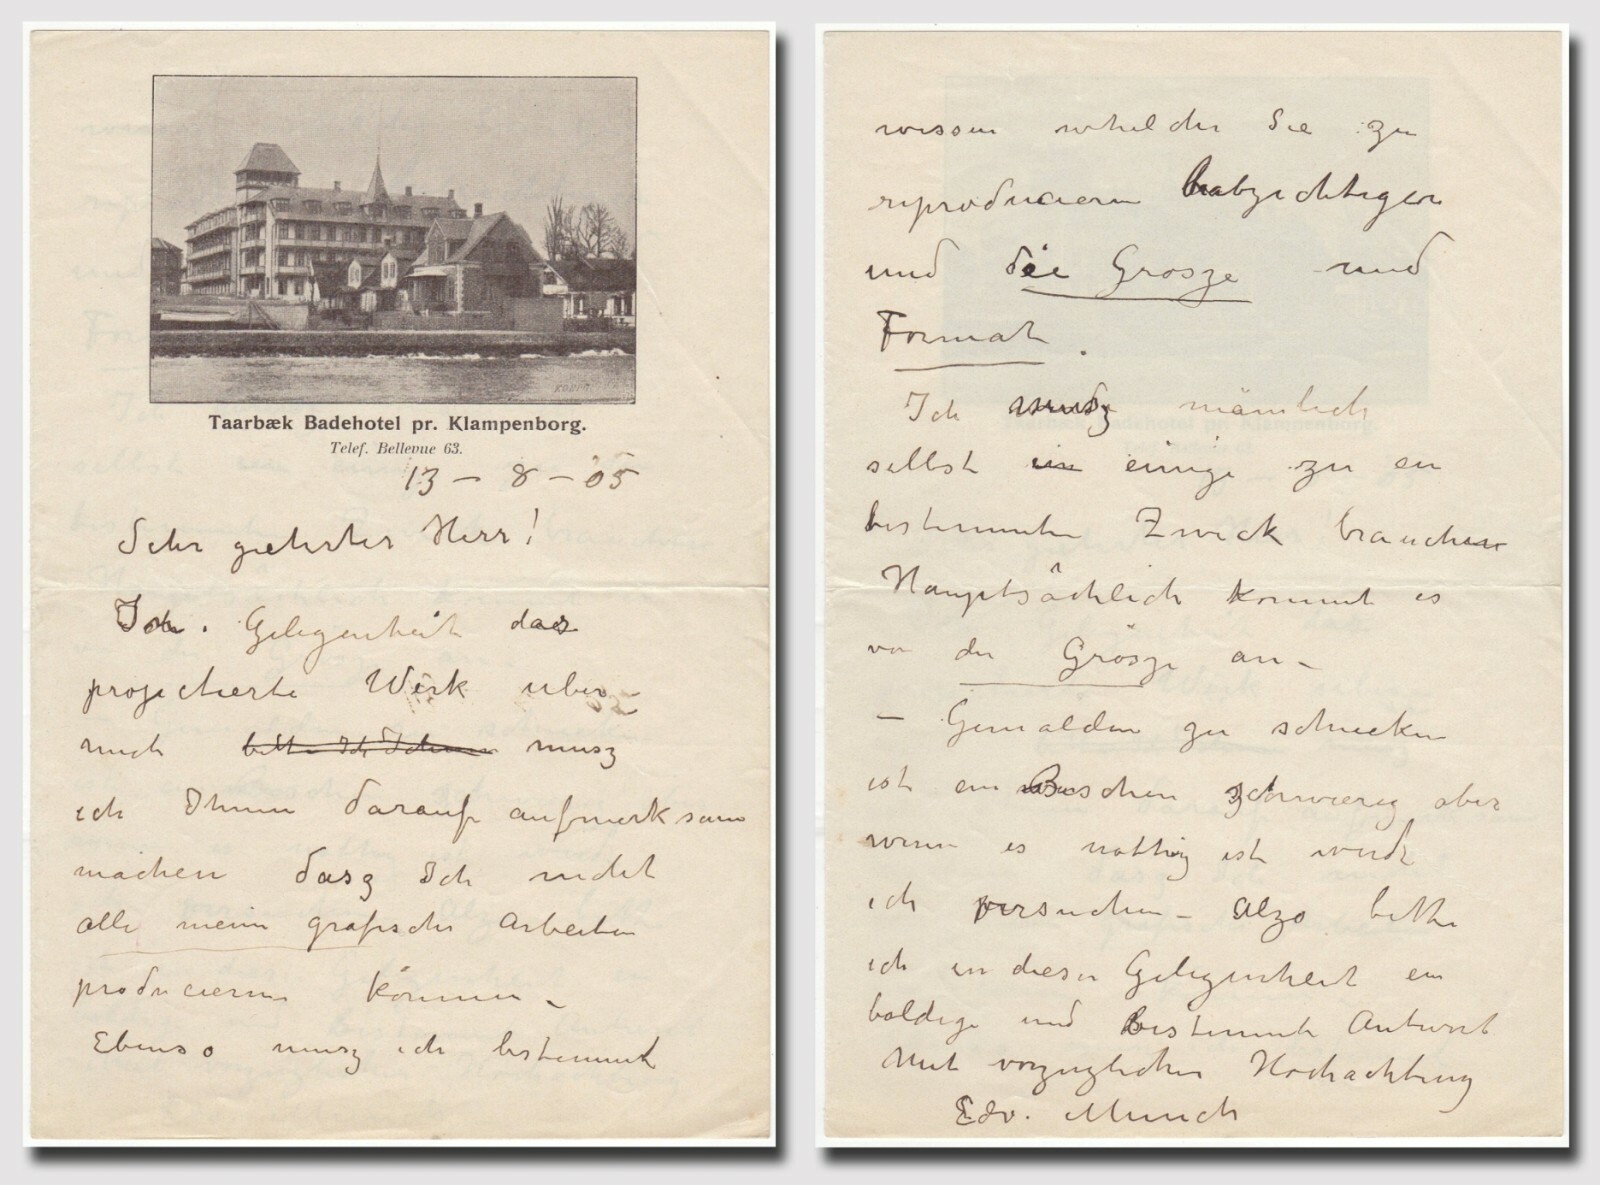 Taarbæk Badehotel pr. Klampenborg.
Telef. Bellevue 63.
13 – 8 – 05
Sehr geehrter Herr!
Gelegenheit das
projectierte Werk uber
mich musz
ich Ihnen darauf aufmerksam
machen dasz Ich nicht
alle meine grafische Arbeiten
producieren können –
Ebenso musz ich bestemmt
wissen whelche Sie zu
reproducieren beabzichtigen
und die Grosze und
Format.
Ich musz nämlich
selbst einige zu en
bestemmten Zweck brauchen
Hauptsächlich kommt es
vor der Grösze an –
– Gemalden zu schicken
ist ein Bischen schwierig aber
wenn es nothig ist werde
ich versuchen – Alzo bitte
ich in dieser Gelegenheit ein
baldige und bestemmte Antwort
Mit vorzuglicher Hochachtung
Edv. Munch